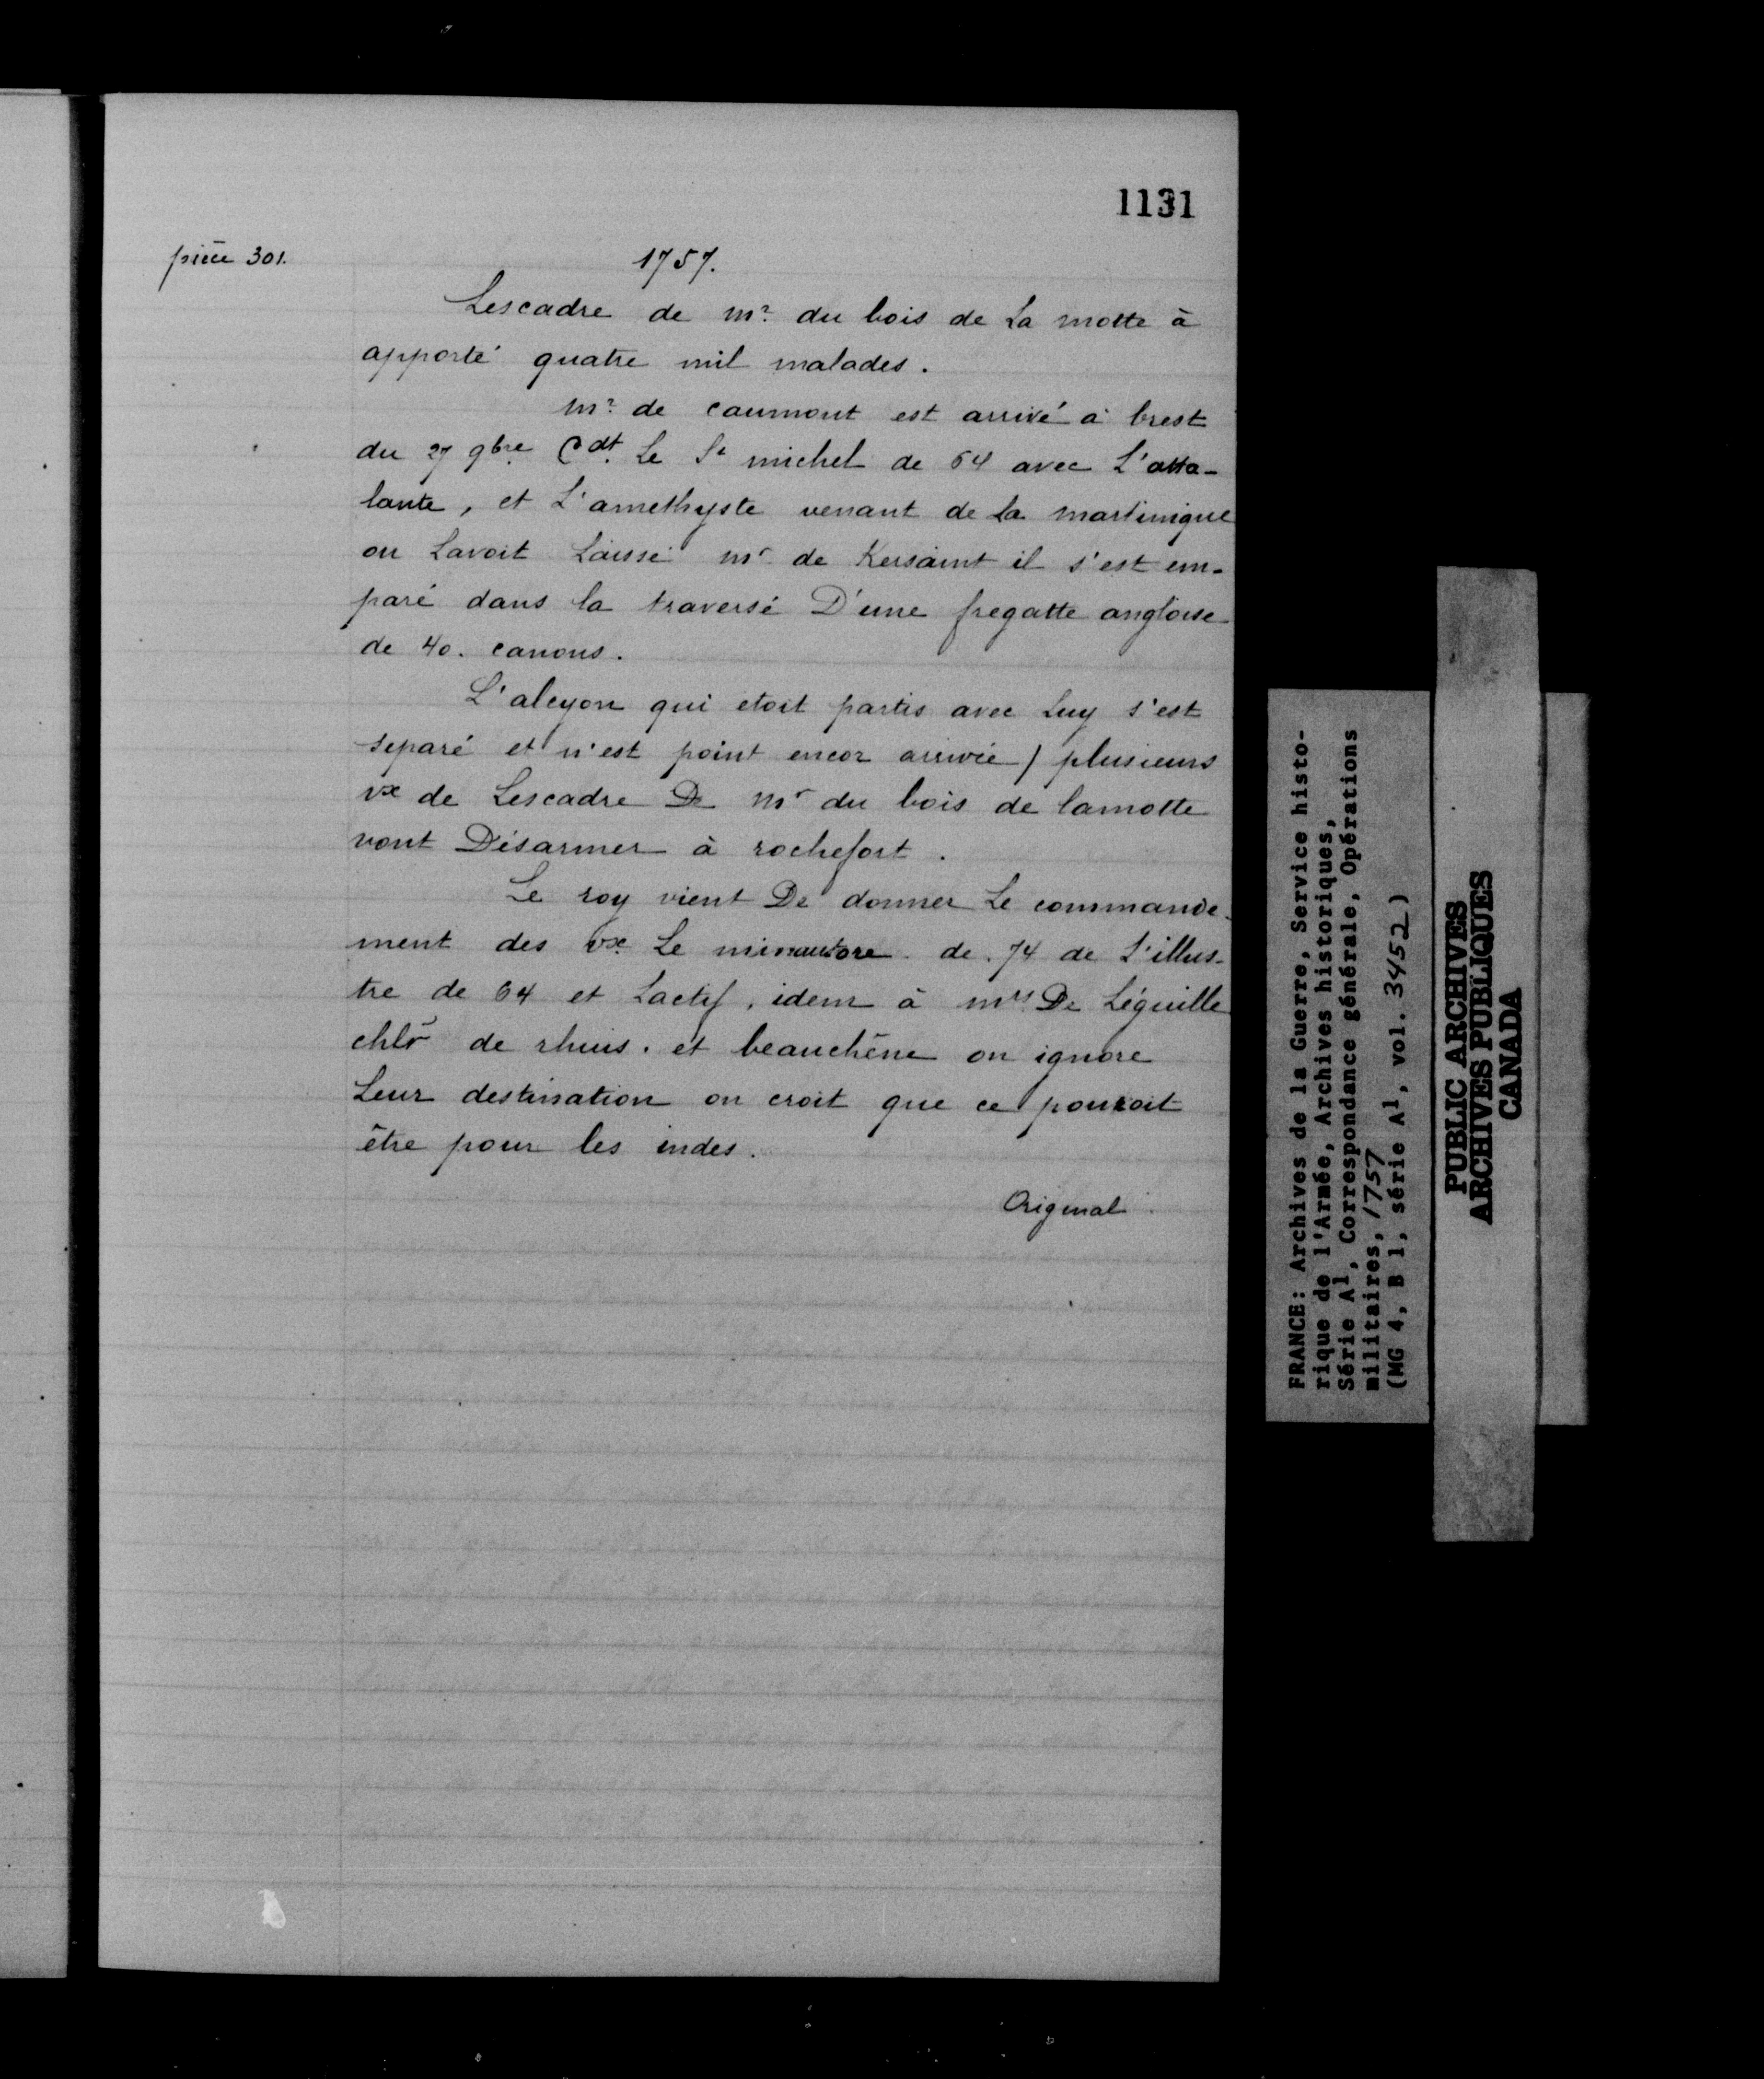 1131
pièce 301.
1757.
Lescadre de mr. du bois de La motte à
apporté quatre mil malades.
mr. de caumont est arrivé à brest
du 27 9bre. Cdt. Le St michel de 64 avec L'atta-
lante, et L'amethyste venant de La martinique
ou Lavoit Laissé mr de Kersaint il s'est em-
paré dans la traversé D'une fregatte angloise
de 40. canons.
L'alcyon qui etoit partis avec Luy s'est
separé et n'est point encor arrivée) plusieurs
vx de Lescadre De mr du bois de lamotte
vont Désarmer à rochefort.
Le roy vient De donner Le commande-
ment des vx. Le minautore de .74 de L'illus-
tre de 64 et Lactif, idem à mrs De Léguille
chlr de rhuis. et beauchêne on ignore
Leur destination on croit que ce pouroit
être pour les indes.
Original
FRANCE: Archives de la Guerre, Service histo-
rique de l'Armée, Archives historiques,
Série A1, Correspondance générale, Opérations
militaires, 1757
(MG 4, B 1, série A1, vol. 3452)
PUBLIC ARCHIVES
ARCHIVES PUBLIQUES
CANADA